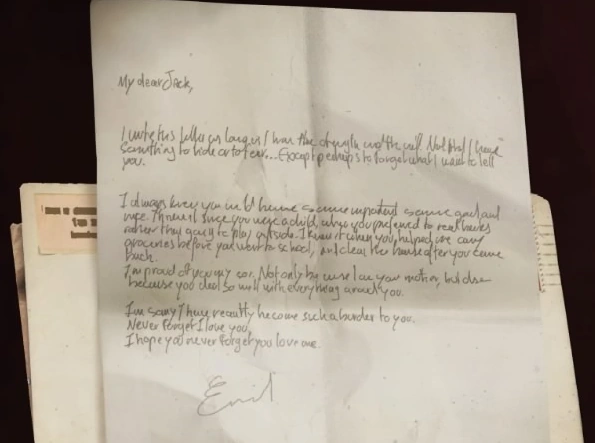 My dear Jack,
I write this letter as long as I have the strength and the will. Not that I have
something to hide or to fear... Except perhaps to forget what I want to tell
you.
I always knew you would become someone important, someone good and
nice. I knew it since you were a child, when you preferred to read books
rather than going to play outside. I knew it when you helped me carry
groceries before you went to school, and clean the house after you came
back.
I'm proud of you my son. Not only because I am your mother, but also
because you deal so well with everything around you.
I'm sorry I have recently become such a burden to you.
Never forget I love you,
I hope you never forget you love me.